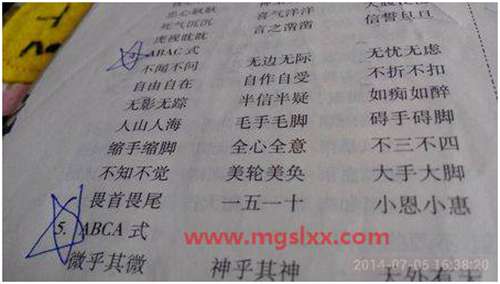 忠心耿耿
死气沉沉 喜气洋洋
虎视眈眈 言之凿凿 信誓旦旦
ABAC 式
不闻不问 无边无际 无忧无虑
自由自在 自作自受 不折不扣
无影无踪 半信半疑 如痴如醉
人山人海 毛手毛脚 碍手碍脚
缩手缩脚 全心全意 不三不四
不知不觉 美轮美奂 大手大脚
畏首畏尾 一五一十 小恩小惠
5. ABCA 式
www.mgslxx.com
微乎其微 神乎其神 天外有天
2014-07-05 16:38:20